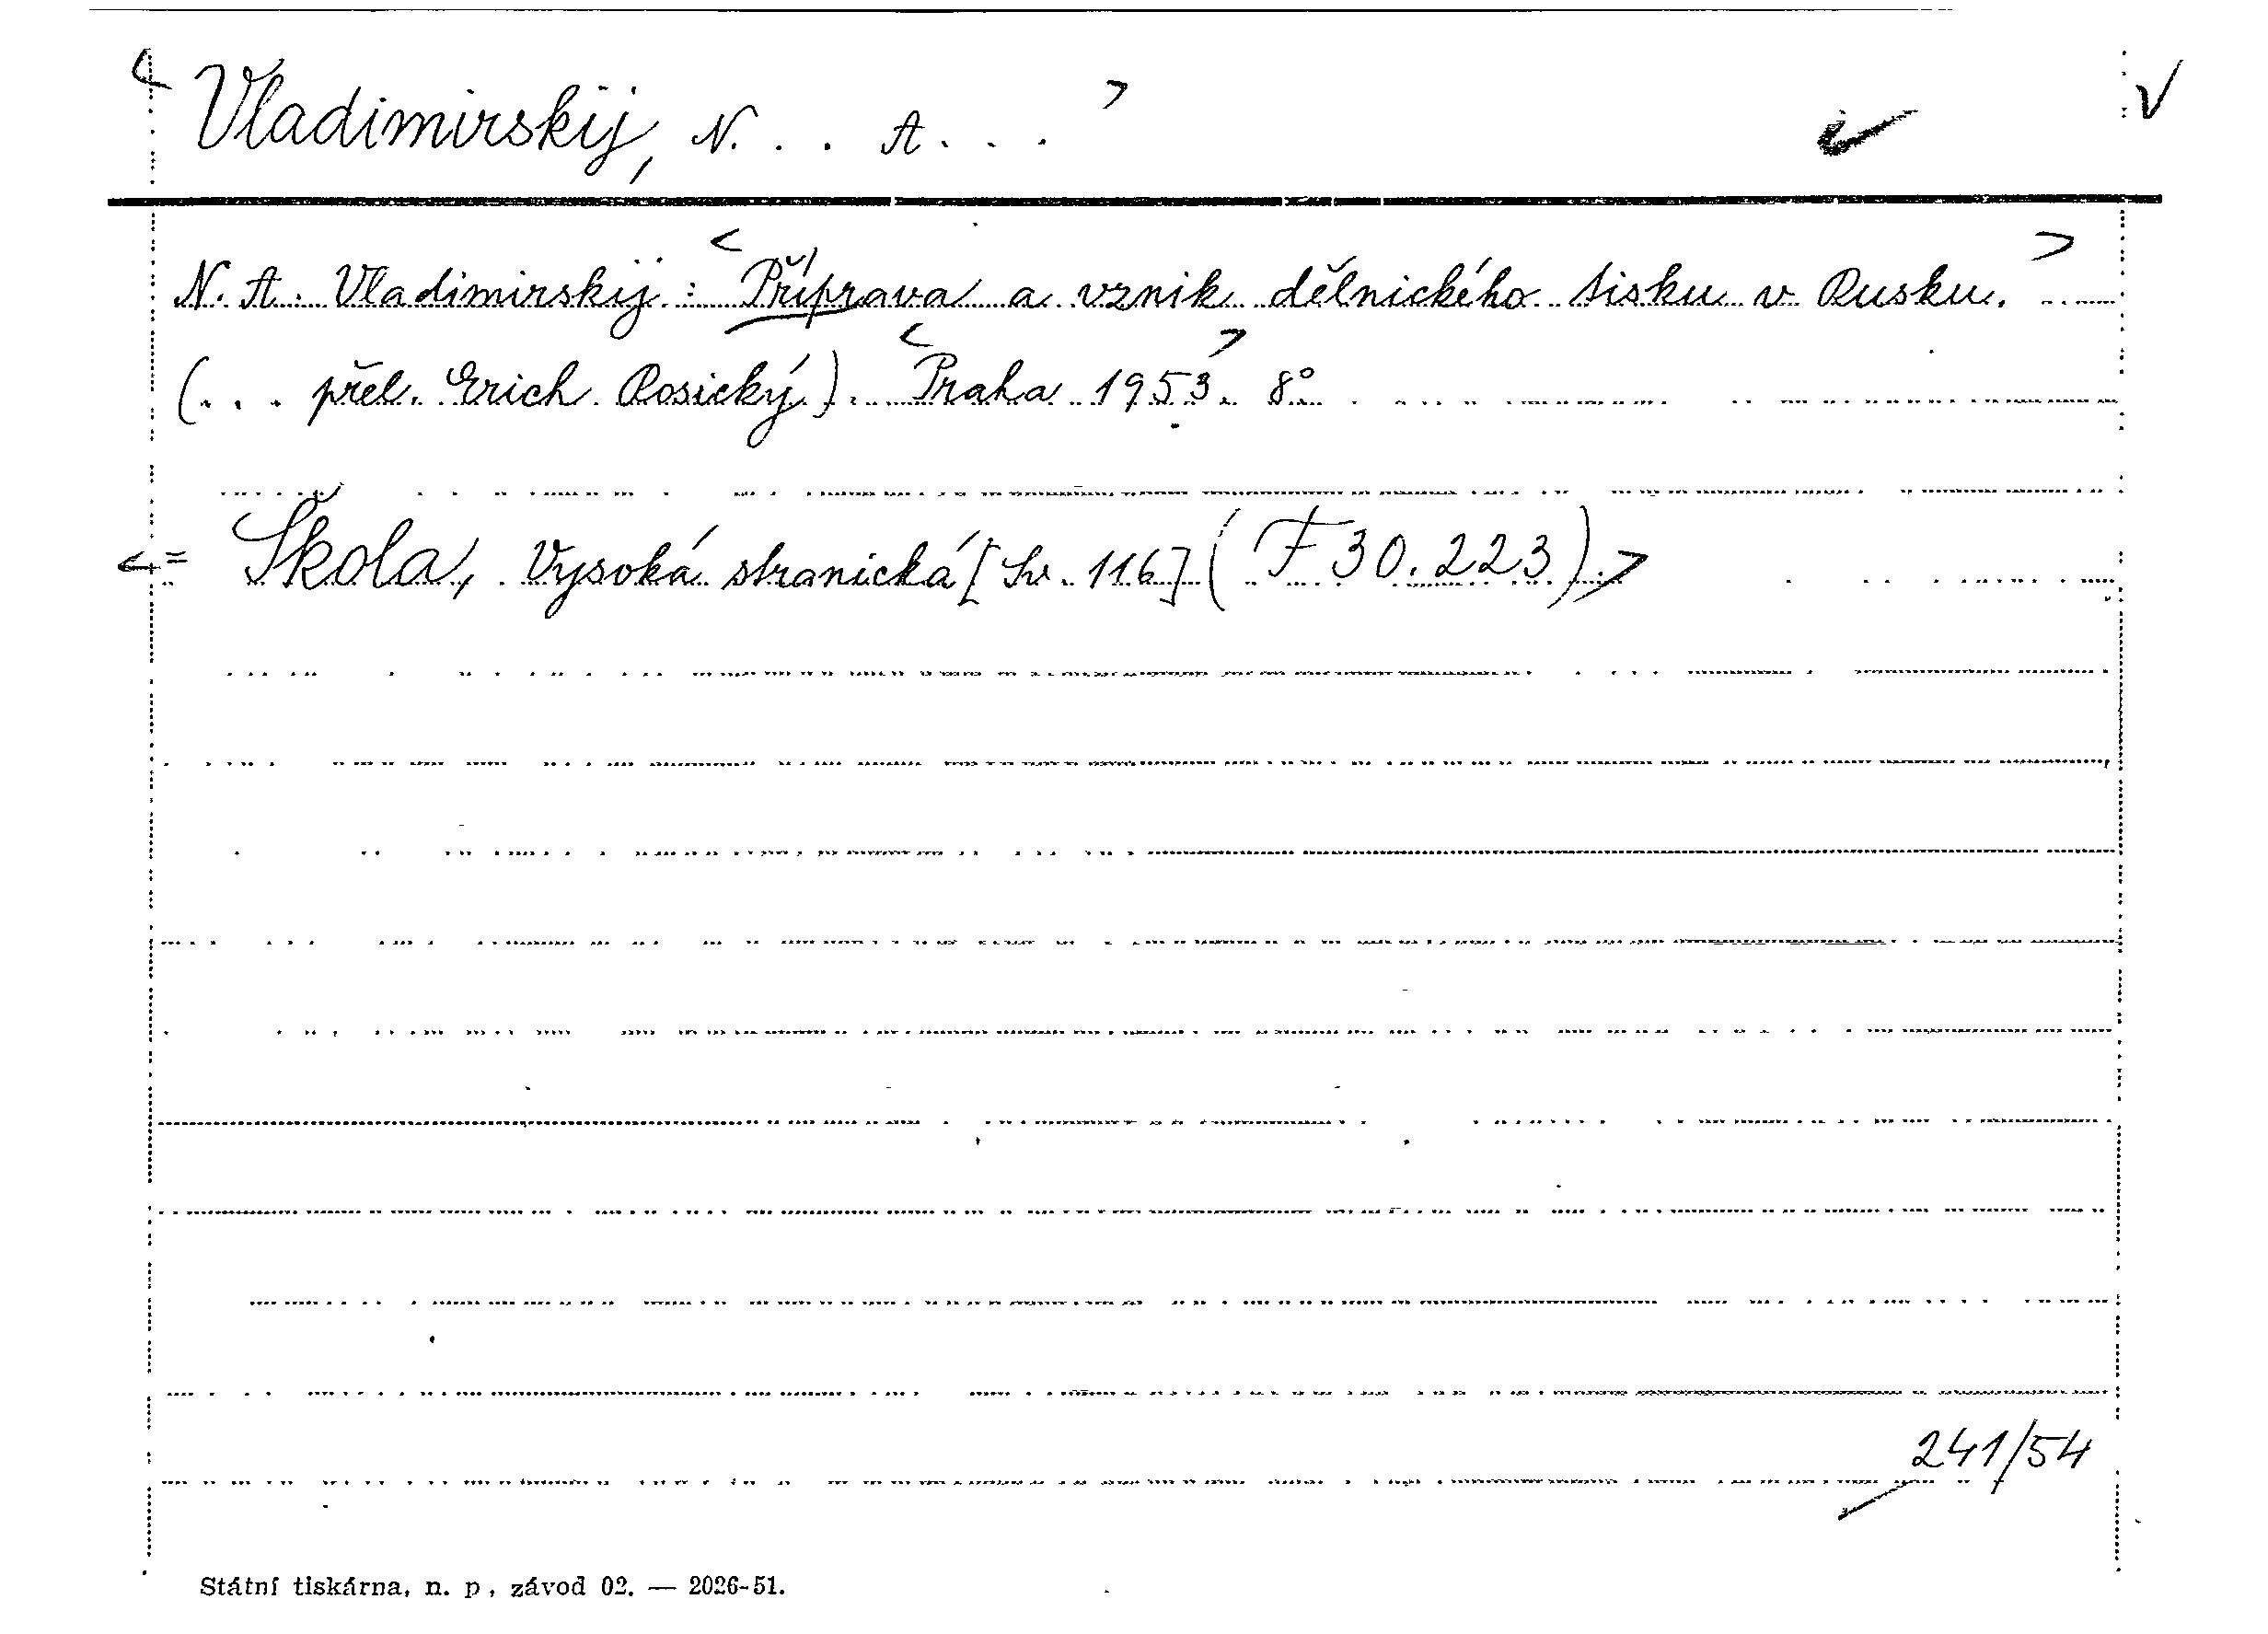 < Vladimirskij, N. . . A. . . > v
N. A. Vladimirskij: <Příprava a vznik dělnického tisku v Rusku.>
(. . . přel. Erich Rosický). <Praha 1953>. 8°
<= Škola, Vysoká stranická [Sv. 116] (F 30.223).>
241/54
Státní tiskárna, n. p., závod 02. — 2026-51.